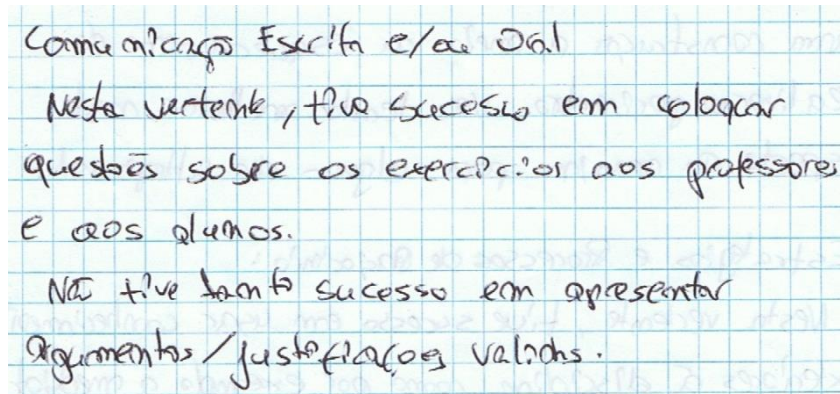 Comunicação Escrita e/ou Oral
Nesta vertente, tive sucesso em colocar
questões sobre os exercícios aos professores
e aos alunos.
Não tive tanto sucesso em apresentar
argumentos/justificações validas.